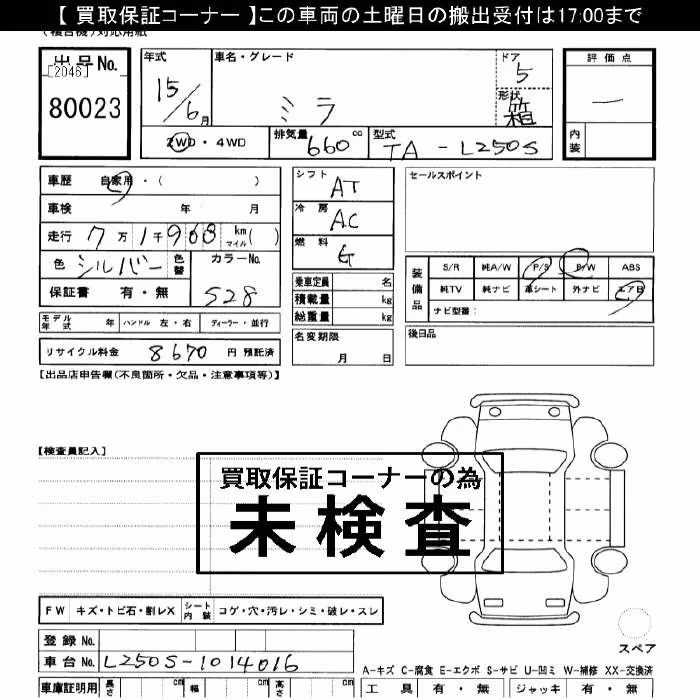 【 買取保証コーナー 】この車両の土曜日の搬出受付は17:00まで
(複合機)対応用紙
出品No. [2046] 80023
年式 15/6月
車名・グレード ミラ
ドア 5
形状 箱
評価点 —
内装
2WD・4WD
排気量 660 cc
型式 TA-L250S
車歴 自家用・( )
車検 年 月
走行 7万1千968 km マイル( )
色 シルバー 色替
カラーNo. 528
保証書 有・無
シフト AT
冷房 AC
燃料 G
乗車定員 名
積載量 kg
総重量 kg
セールスポイント
装備品 S/R 純A/W P/S P/W ABS
純TV 純ナビ 革シート 外ナビ エアB
ナビ型番:
モデル年式 年 ハンドル 左・右 ディーラー・並行
リサイクル料金 8670 円 預託済
名変期限 月 日
後日品
【出品店申告欄(不良箇所・欠品・注意事項等)】
【検査員記入】
買取保証コーナーの為
未検査
FW キズ・トビ石・割レX シート内装 コゲ・穴・汚レ・シミ・破レ・スレ
登録 No.
車台 No. L250S-1014016
スペア
A-キズ C-腐食 E-エクボ S-サビ U-凹ミ W-補修 XX-交換済
車庫証明用 長さ cm 幅 cm 高さ cm
工具 有・無 ジャッキ 有・無